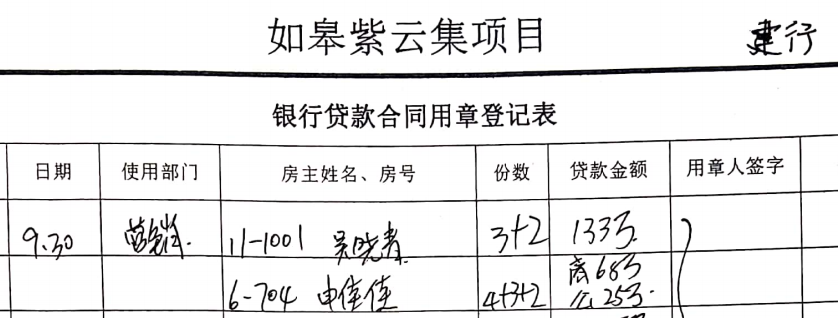 如皋紫云集项目 建行
银行贷款合同用章登记表
日期 使用部门 房主姓名、房号 份数 贷款金额 用章人签字
9.30 11-1001 吴晓青 3+2 133万
6-704 申佳佳 4+3+2 商68万
公25万